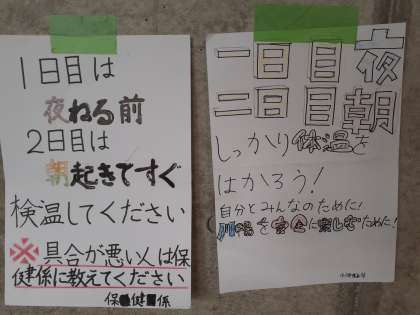 1日目は
夜ねる前
2日目は
朝起きてすぐ
検温してください
※具合が悪い人は保
健係に教えてください
保健係
一日目夜
二日目朝
しっかり体温を
はかろう!
自分とみんなのために!
を安全に楽しむために!